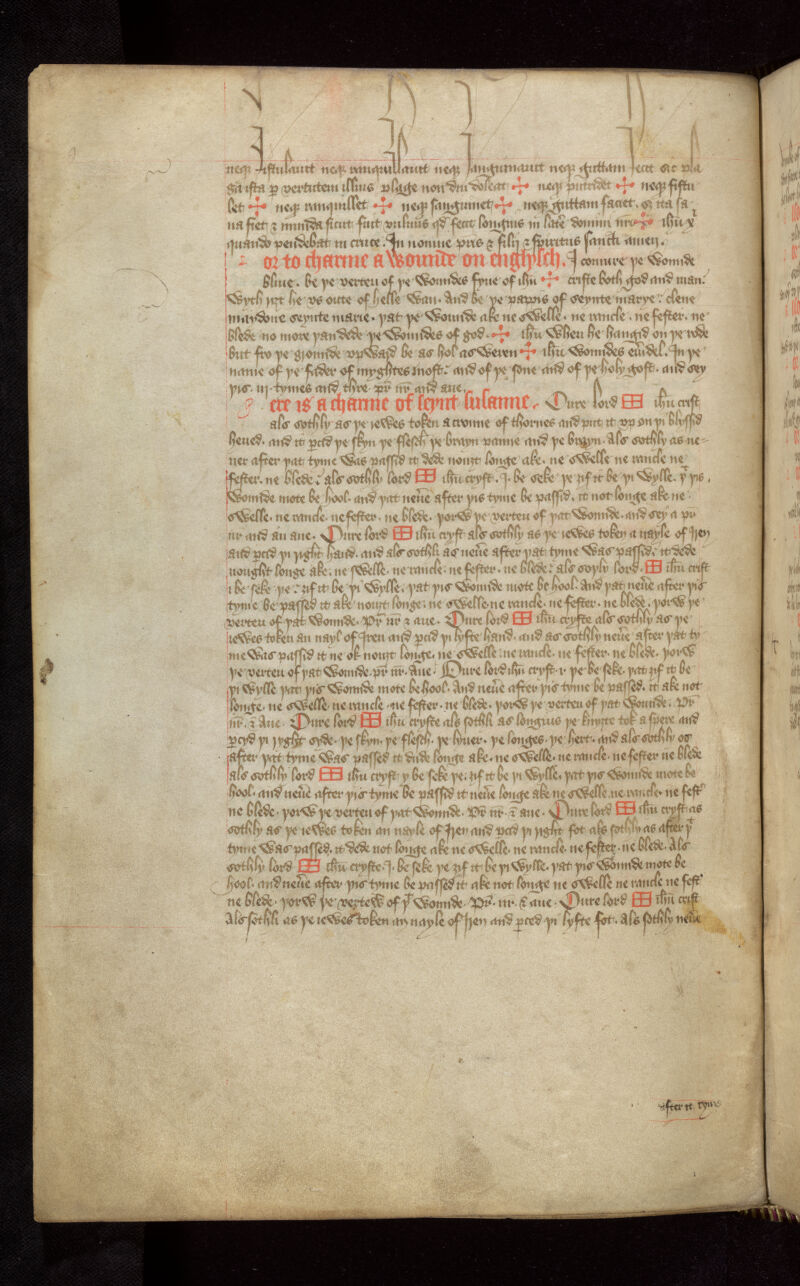 neqʒ fistulauit neqʒ ranquillauit neqʒ sanguinauit neqʒ guttam fecit sic pla
ga ista ꝑ vertutem illius plage non doleat ✣ neqʒ putridet ✣ neqʒ fistu
let ✣ neqʒ ranquillet ✣ neqʒ sanguinet ✣ neqʒ guttam faciet. ita sa
na fiet ⁊ munda sicut fuit vulnus qd fecit longius in latere domini nri ✣ ihu x
quando pendebat in cruce. In nomine pris ⁊ filij ⁊ spiritus sancti amen.
or to charme a wounde on englysch. I coniure þe wounde
blyue. be þe verteu of þe woundes fyue of ihu ✣ criste both god and man.
wyth þat he us oute of helle wan. And be þe pappis of seynte marye clene
maydone seynte marie. þat þe wounde ake ne swelle. ne rancle. ne fester. ne
blede no more þan dede þe woundes of god ✣ ihu when he hangid on þe rode
but fro þe grounde upward be as hol as weren ✣ ihu woundes eurdel. In þe
name of þe fader of myghtes most. and of þe sone and of þe holy gost. and sey
þis. iij tymes and thre pr nr and aue.
ere is a charme of seynt susanne. Oure lord ihu crist
als sothly as þe iewes token a crowne of thornes and put it up on þi blyssid
heued. and it ꝑced þe skyn þe flesch þe brayn panne and þe brayn. Als sothly as ne
uer after þat tyme was passid it dede nouȝt longe ake. ne swelle ne rancle ne
fester. ne blede. als sothli lord ihu cryst. I. be seke þe ȝif it be þi wylle. þt þis
wounde mote be hool. and þat neue after þis tyme be passid. it not longe ake ne
swelle. ne rancle. ne fester. ne blede. þorw þe verteu of þat wounde. and sey a pr
nr and an aue. Oure lord ihu cryst als sothly as þe iewes token a nayle of yren
and ꝑced þi ryght hand. and als sothli as neue after þat tyme was passid. it dede
nought longe ake. ne swelle. ne rancle. ne fester. ne blede. als soþly lord. ihu crist
i be seke þe ȝif it be þi wylle. þat þis wounde mote be hool. And þat neue after þis
tyme be passed it ake nouȝt longe. ne swelle. ne rancle. ne fester. ne blede. þorw þe
verteu of þat wounde. Pr nr ⁊ aue. Oure lord ihu cryste als sothly as þe
iewes token an nayl of Iren and ꝑced þi lyfte hand. and as sothly neue after þat ty
me was passid it ne ok nouȝt longe. ne swelle. ne rancle. ne fester. ne blede. þorw
þe verteu of þat wounde. pr nr. Aue. Oure lord ihu cryst. y þe be seke. þat ȝif it be
þi wylle þat þis wounde mote be hool. And neue after þis tyme be passed. it ake not
longe. ne swelle. ne rancle. ne fester. ne blede. þorw þe verteu of þat wounde. Pr
nr. ⁊ Aue. Oure lord ihu cryste als sothli as longius þe knyȝte tok a spere and
ꝑcyd þi ryght syde. þe skyn. þe flesch. þe lyuer. þe longes. þe hert. and als sothli os
after þat tyme was passid it dide longe ake. ne swelle. ne rancle. ne fester ne blede
als sothly lord ihu cryst. y be seke þe. ȝif it be þi wylle. þat þis wounde mote be
hool. and neue after þis tyme be passid it neue longe ake ne swelle. ne rancle. ne fest
ne blede. þorw þe verteu of þat wounde. Pr nr. ⁊ aue. Oure lord ihu cryst as
sothly as þe iewes token an nayle of yren and ꝑced þi ryght fot als sothly as after þt
tyme was passed. it dede not longe ake ne swelle. ne rancle. ne fester. ne blede. Als
sothly lord ihu cryste. I. be seke þe ȝif it be þi wylle. þat þis wounde mote be
hool. and neue after þis tyme be passed it ake not longe ne swelle ne rancle ne fest
ne blede. þorw þe vertew of þt wounde. Pr. nr. ⁊ aue. Oure lord ihu crist
Als sothli as þe iewes token an nayle of yren and ꝑced þi lyfte fot. Als sothly neue
after it tyme